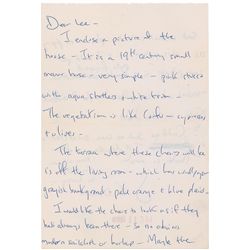 Dear Lee -
I enclose a picture of the
house - It is a 19th century small
manor house - very simple - pink stucco
with aqua shutters + white trim -
The vegetation is like Corfu - cypresses
+ olives -
The terrace where these chairs will be
is off the living room - which has
grayish background - pale orange + blue plaid -
I would like the chairs to look as if they
had always been there - so no obvious
modern or - Maybe the